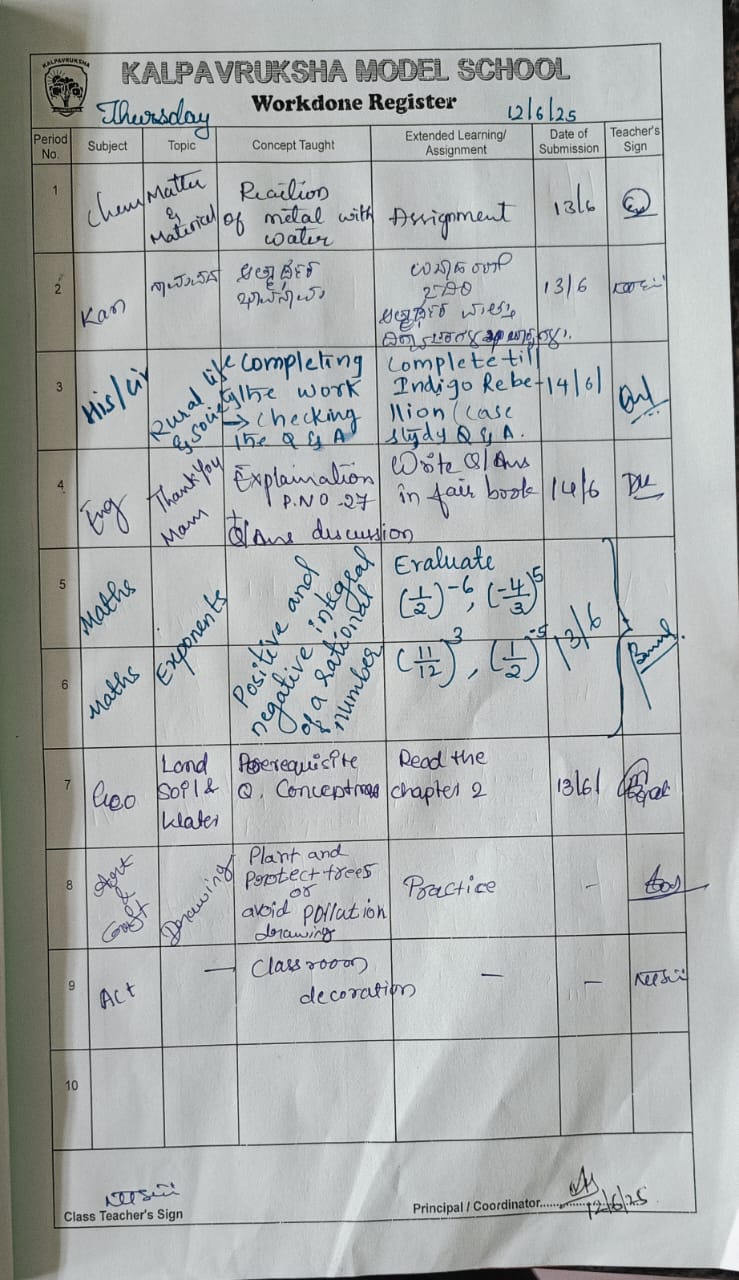 KALPAVRUKSHA
KALPAVRUKSHA MODEL SCHOOL
Workdone Register
Thursday
12/6/25
Period No.
Subject
Topic
Concept Taught
Extended Learning/ Assignment
Date of Submission
Teacher's Sign
1
Chem
Matter
&
Material
Reaction
of metal with
water
Assignment
13/6
2
Kan
13/6
3
His/Civ
Rural life
& society
Completing
the work
→ Checking
the Q & A
Complete till
Indigo Rebe-
llion/case
study Q & A.
14/6/
4
Eng
Thank You
Mam
Explaination
P.NO-27
Q/Ans discussion
Write Q/Ans
in fair book
14/6
5
Maths
6
Maths
Exponents
Positive and
negative integral
of a rational
number
Evaluate
(1/2)⁻⁶, (-4/3)⁵
(11/12)³, (1/2)⁻⁵
13/6
7
Geo
Land
Soil &
Water
Prerequisite
Q. Concept
Read the
chapter 2
13/6/
8
Art
&
Craft
Drawing
Plant and
Protect trees
or
avoid pollution
drawing
Practice
-
9
Act
—
Classroom
decoration
—
—
10
Class Teacher's Sign
Principal / Coordinator
12/6/25